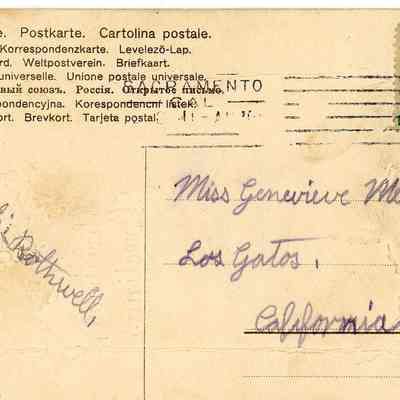 e. Postkarte. Cartolina postale.
Korrespondenzkarte. Levelező-Lap.
rd. Weltpostverein. Briefkaart.
universelle. Unione postale universale.
вый союзъ. Россія. Открытое письмо.
pondencyjna. Korespondenčni listek.
ort. Brevkort. Tarjeta postal.
SACRAMENTO
CAL
Miss Genevieve Me
Los Gatos,
California
Rothwell,